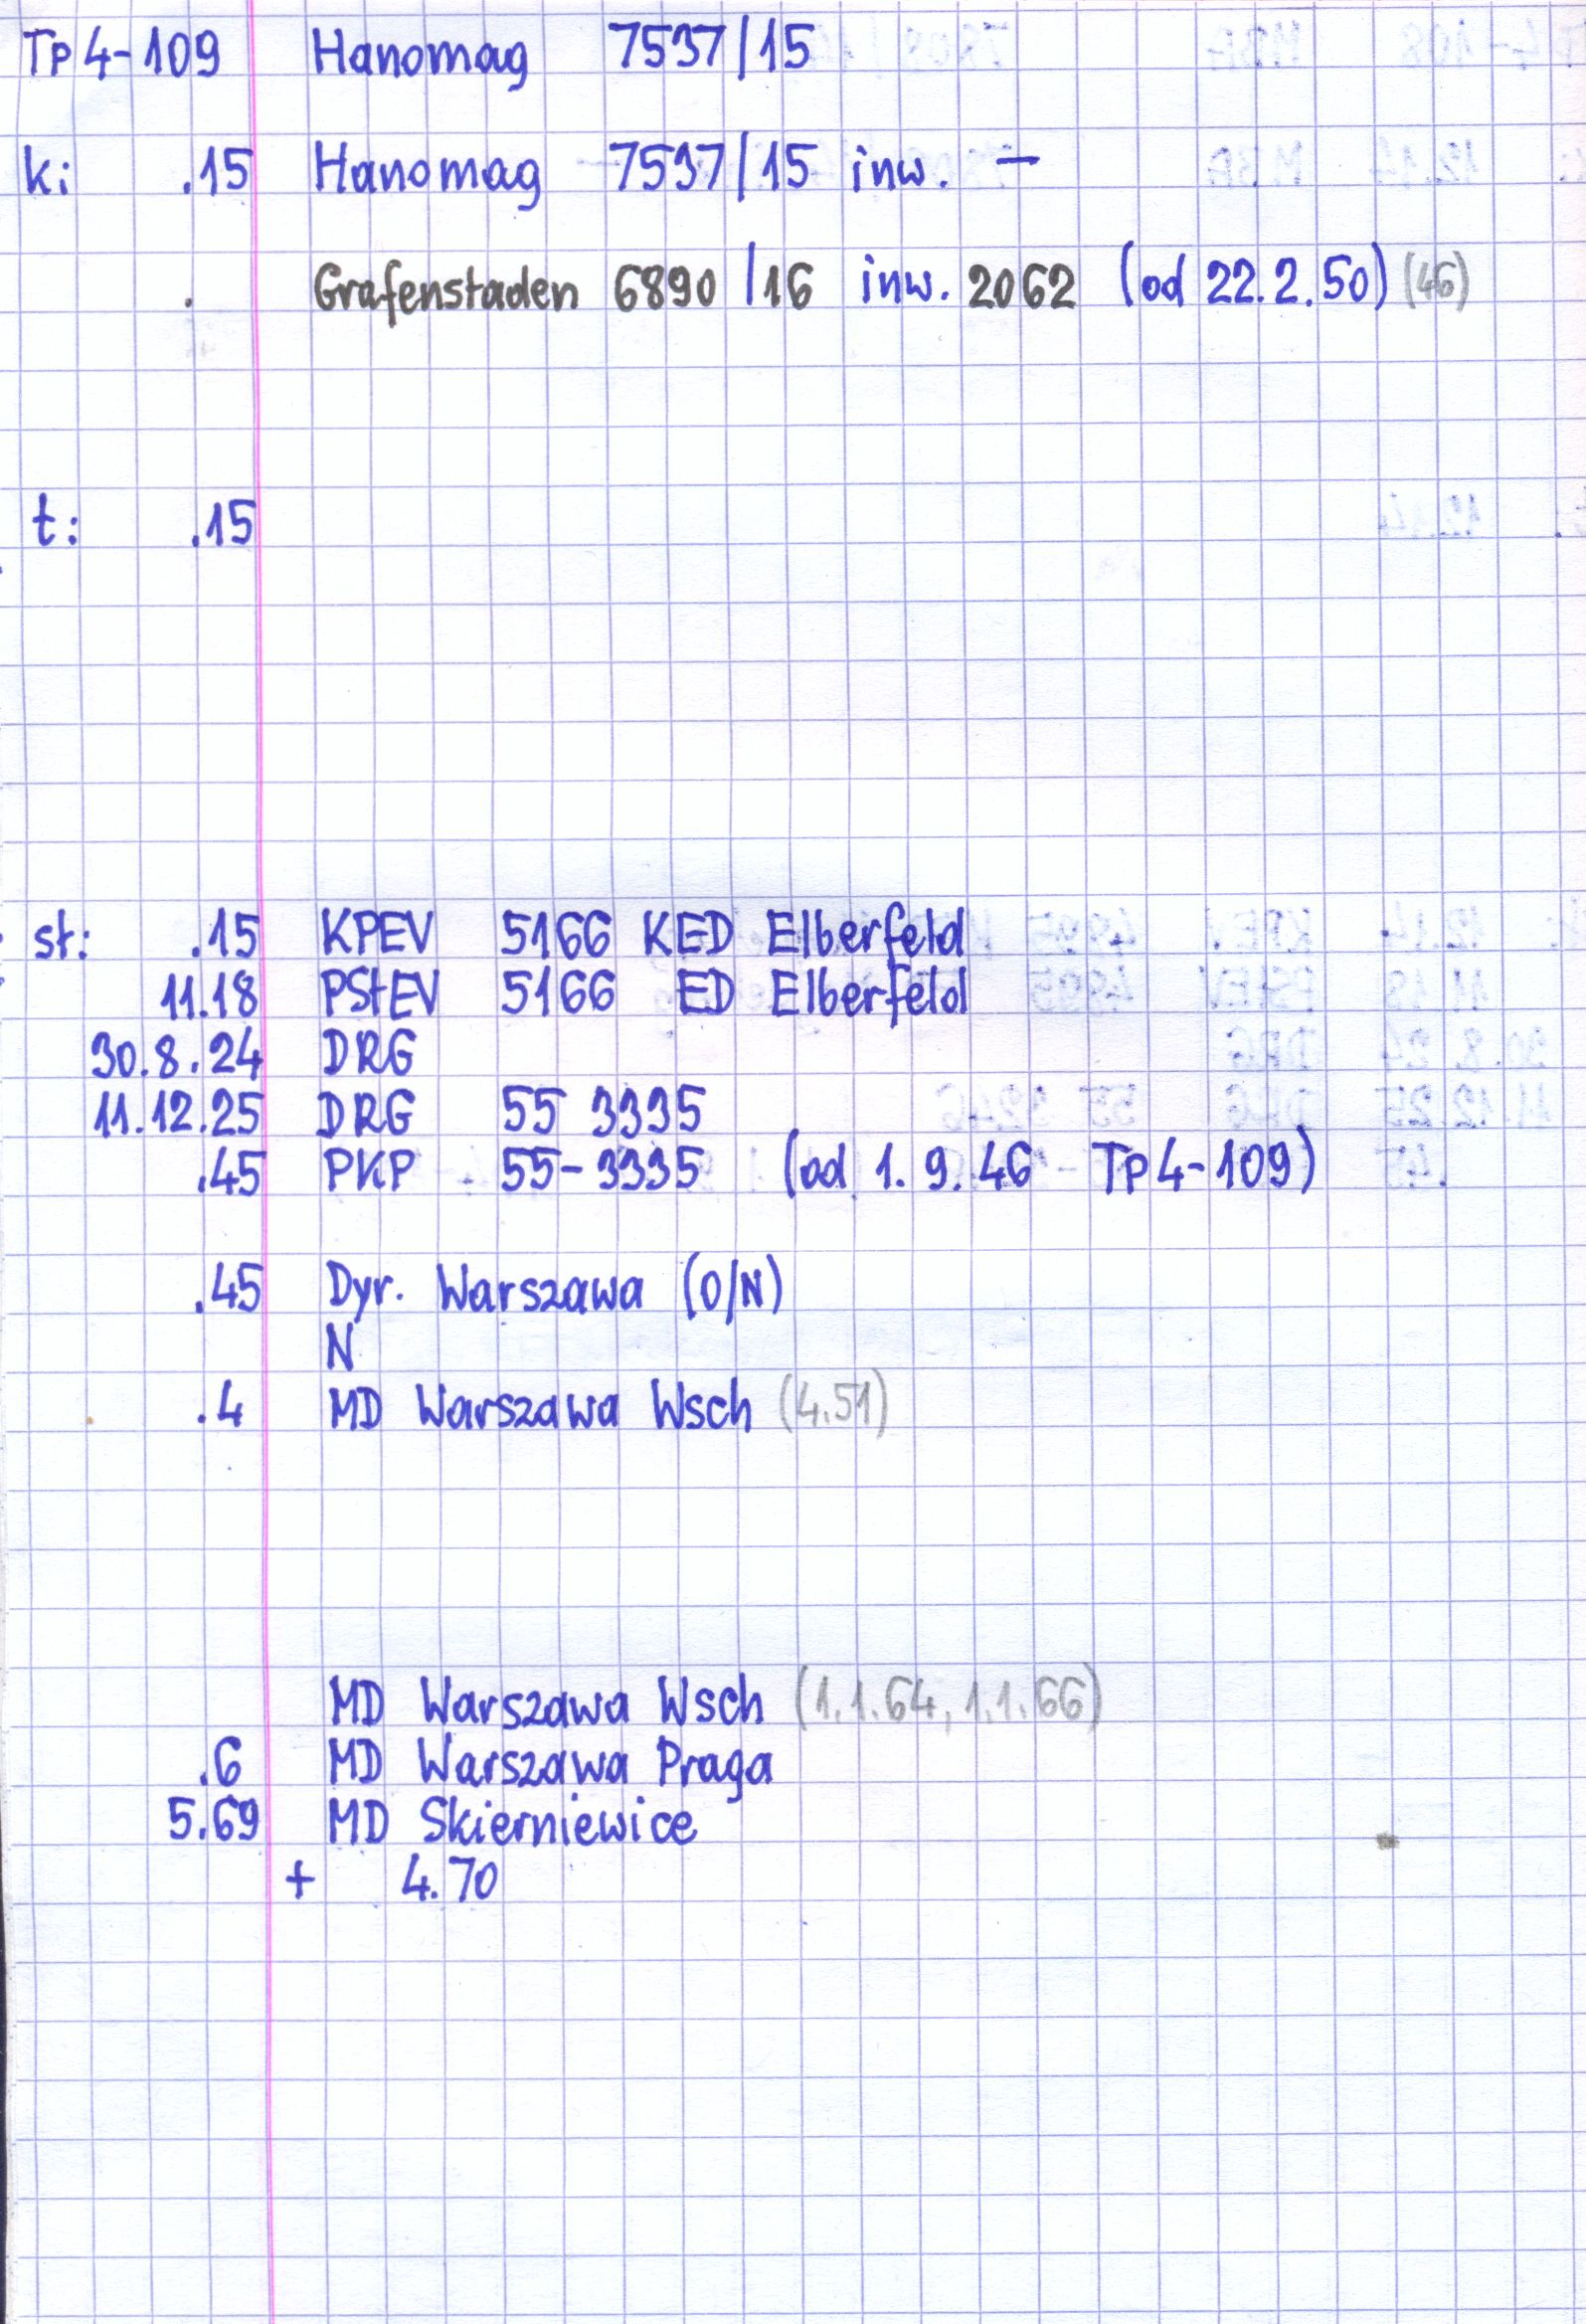 Tp4-109 Hanomag 7537/15
k: .15 Hanomag 7537/15 inw. —
. Grafenstaden 6890/16 inw. 2062 (od 22.2.50) (46)
t: .15
st: .15 KPEV 5166 KED Elberfeld
11.18 PStEV 5166 ED Elberfeld
30.8.24 DRG
11.12.25 DRG 55 3335
.45 PKP 55-3335 (od 1.9.46 Tp4-109)
.45 Dyr. Warszawa (O/N)
N
.4 MD Warszawa Wsch (4.51)
MD Warszawa Wsch (1.1.64, 1.1.66)
.6 MD Warszawa Praga
5.69 MD Skierniewice
+ 4.70